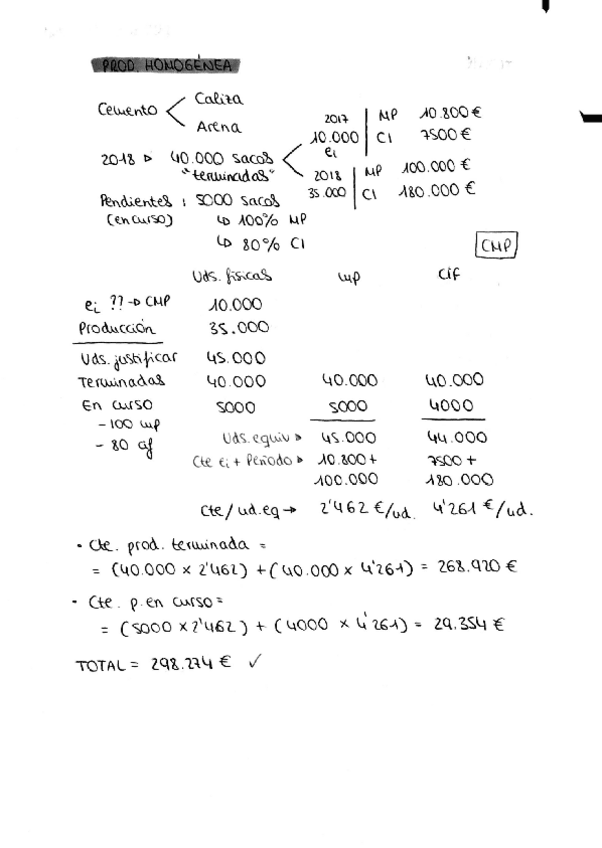 PROD. HOMOGÉNEA
Cemento < Caliza
Arena
2017 MP 10.800 €
10.000 CI 7500 €
ei
2018 ▷ 40.000 sacos
"terminadas"
2018 MP 100.000 €
35.000 CI 180.000 €
Pendientes : 5000 sacos
(en curso) ↳ 100% MP
↳ 80% CI
CMP
Uds. físicas mp cif
ei ?? → CMP 10.000
Producción 35.000
Uds. justificar 45.000
Terminadas 40.000 40.000 40.000
En curso 5000 5000 4000
- 100 mp
- 80 cif
Uds. equiv ▷ 45.000 44.000
Cte Ei + Periodo ▷ 10.800 + 7500 +
100.000 180.000
Cte / ud.eq → 2'462 €/ud. 4'261 €/ud.
• Cte. prod. terminada =
= (40.000 x 2'462) + (40.000 x 4'261) = 268.920 €
• Cte. p. en curso =
= (5000 x 2'462) + (4000 x 4'261) = 29.354 €
TOTAL = 298.274 € ✓